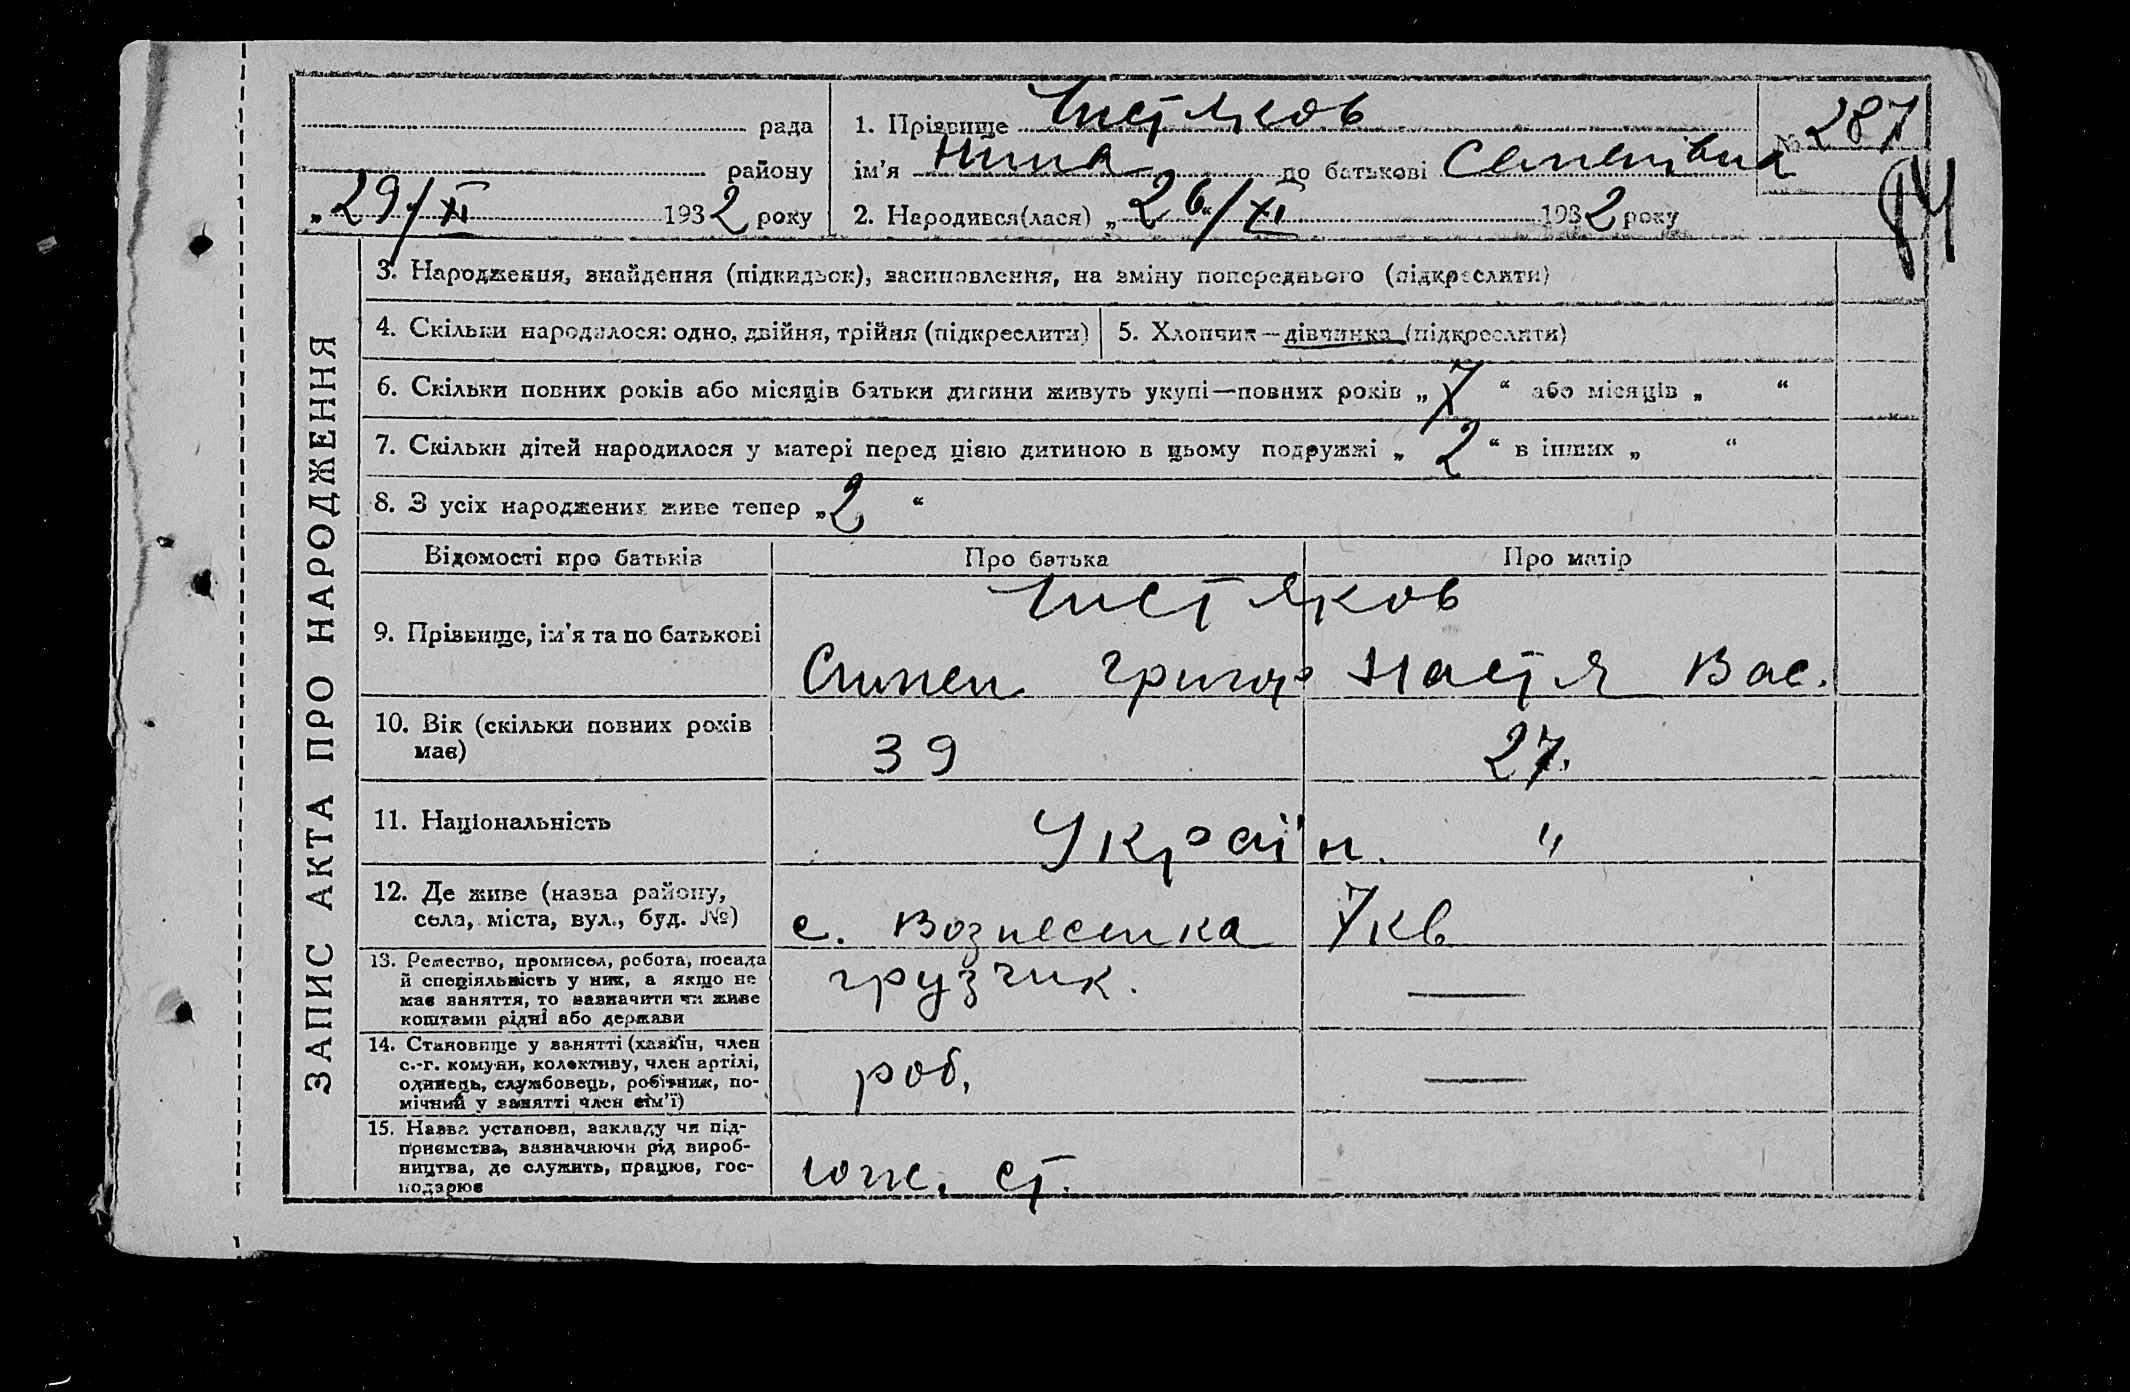 рада
району
„ 29/XI 1932 року
1. Прізвище Чистяков
ім'я Нина по батькові Семенівна
2. Народився(лася) „ 26 “/XI 1932 року
№ 287
ЗАПИС АКТА ПРО НАРОДЖЕННЯ
3. Народження, знайдення (підкидьок), засиновлення, на зміну попереднього (підкреслити)
4. Скільки народилося: одно, двійня, трійня (підкреслити)
5. Хлопчик — дівчинка (підкреслити)
6. Скільки повних років або місяців батьки дитини живуть укупі — повних років „ 7 “ або місяців „ “
7. Скільки дітей народилося у матері перед цією дитиною в цьому подружжі „ 2 “ в інших „ “
8. З усіх народжених живе тепер „ 2 “
Відомості про батьків
Про батька
Про матір
9. Прізвище, ім'я та по батькові
Чистяков
Симен Григор
Настя Вас.
10. Вік (скільки повних років
має)
39
27.
11. Національність
Україн.
"
12. Де живе (назва району,
села, міста, вул., буд. №)
с. Вознесенка
7 кв
13. Ремество, промисел, робота, посада
й спеціяльність у них, а якщо не
має заняття, то зазначити чи живе
коштами рідні або держави
грузчик.
—
14. Становище у занятті (хазяїн, член
с.-г. комуни, колективу, член артілі,
одинець, службовець, робітник, по-
мічний у занятті член сім'ї)
роб.
—
15. Назва установи, закладу чи під-
приємства, зазначаючи рід вироб-
ництва, де служить, працює, гос-
подарює
юж. ст.